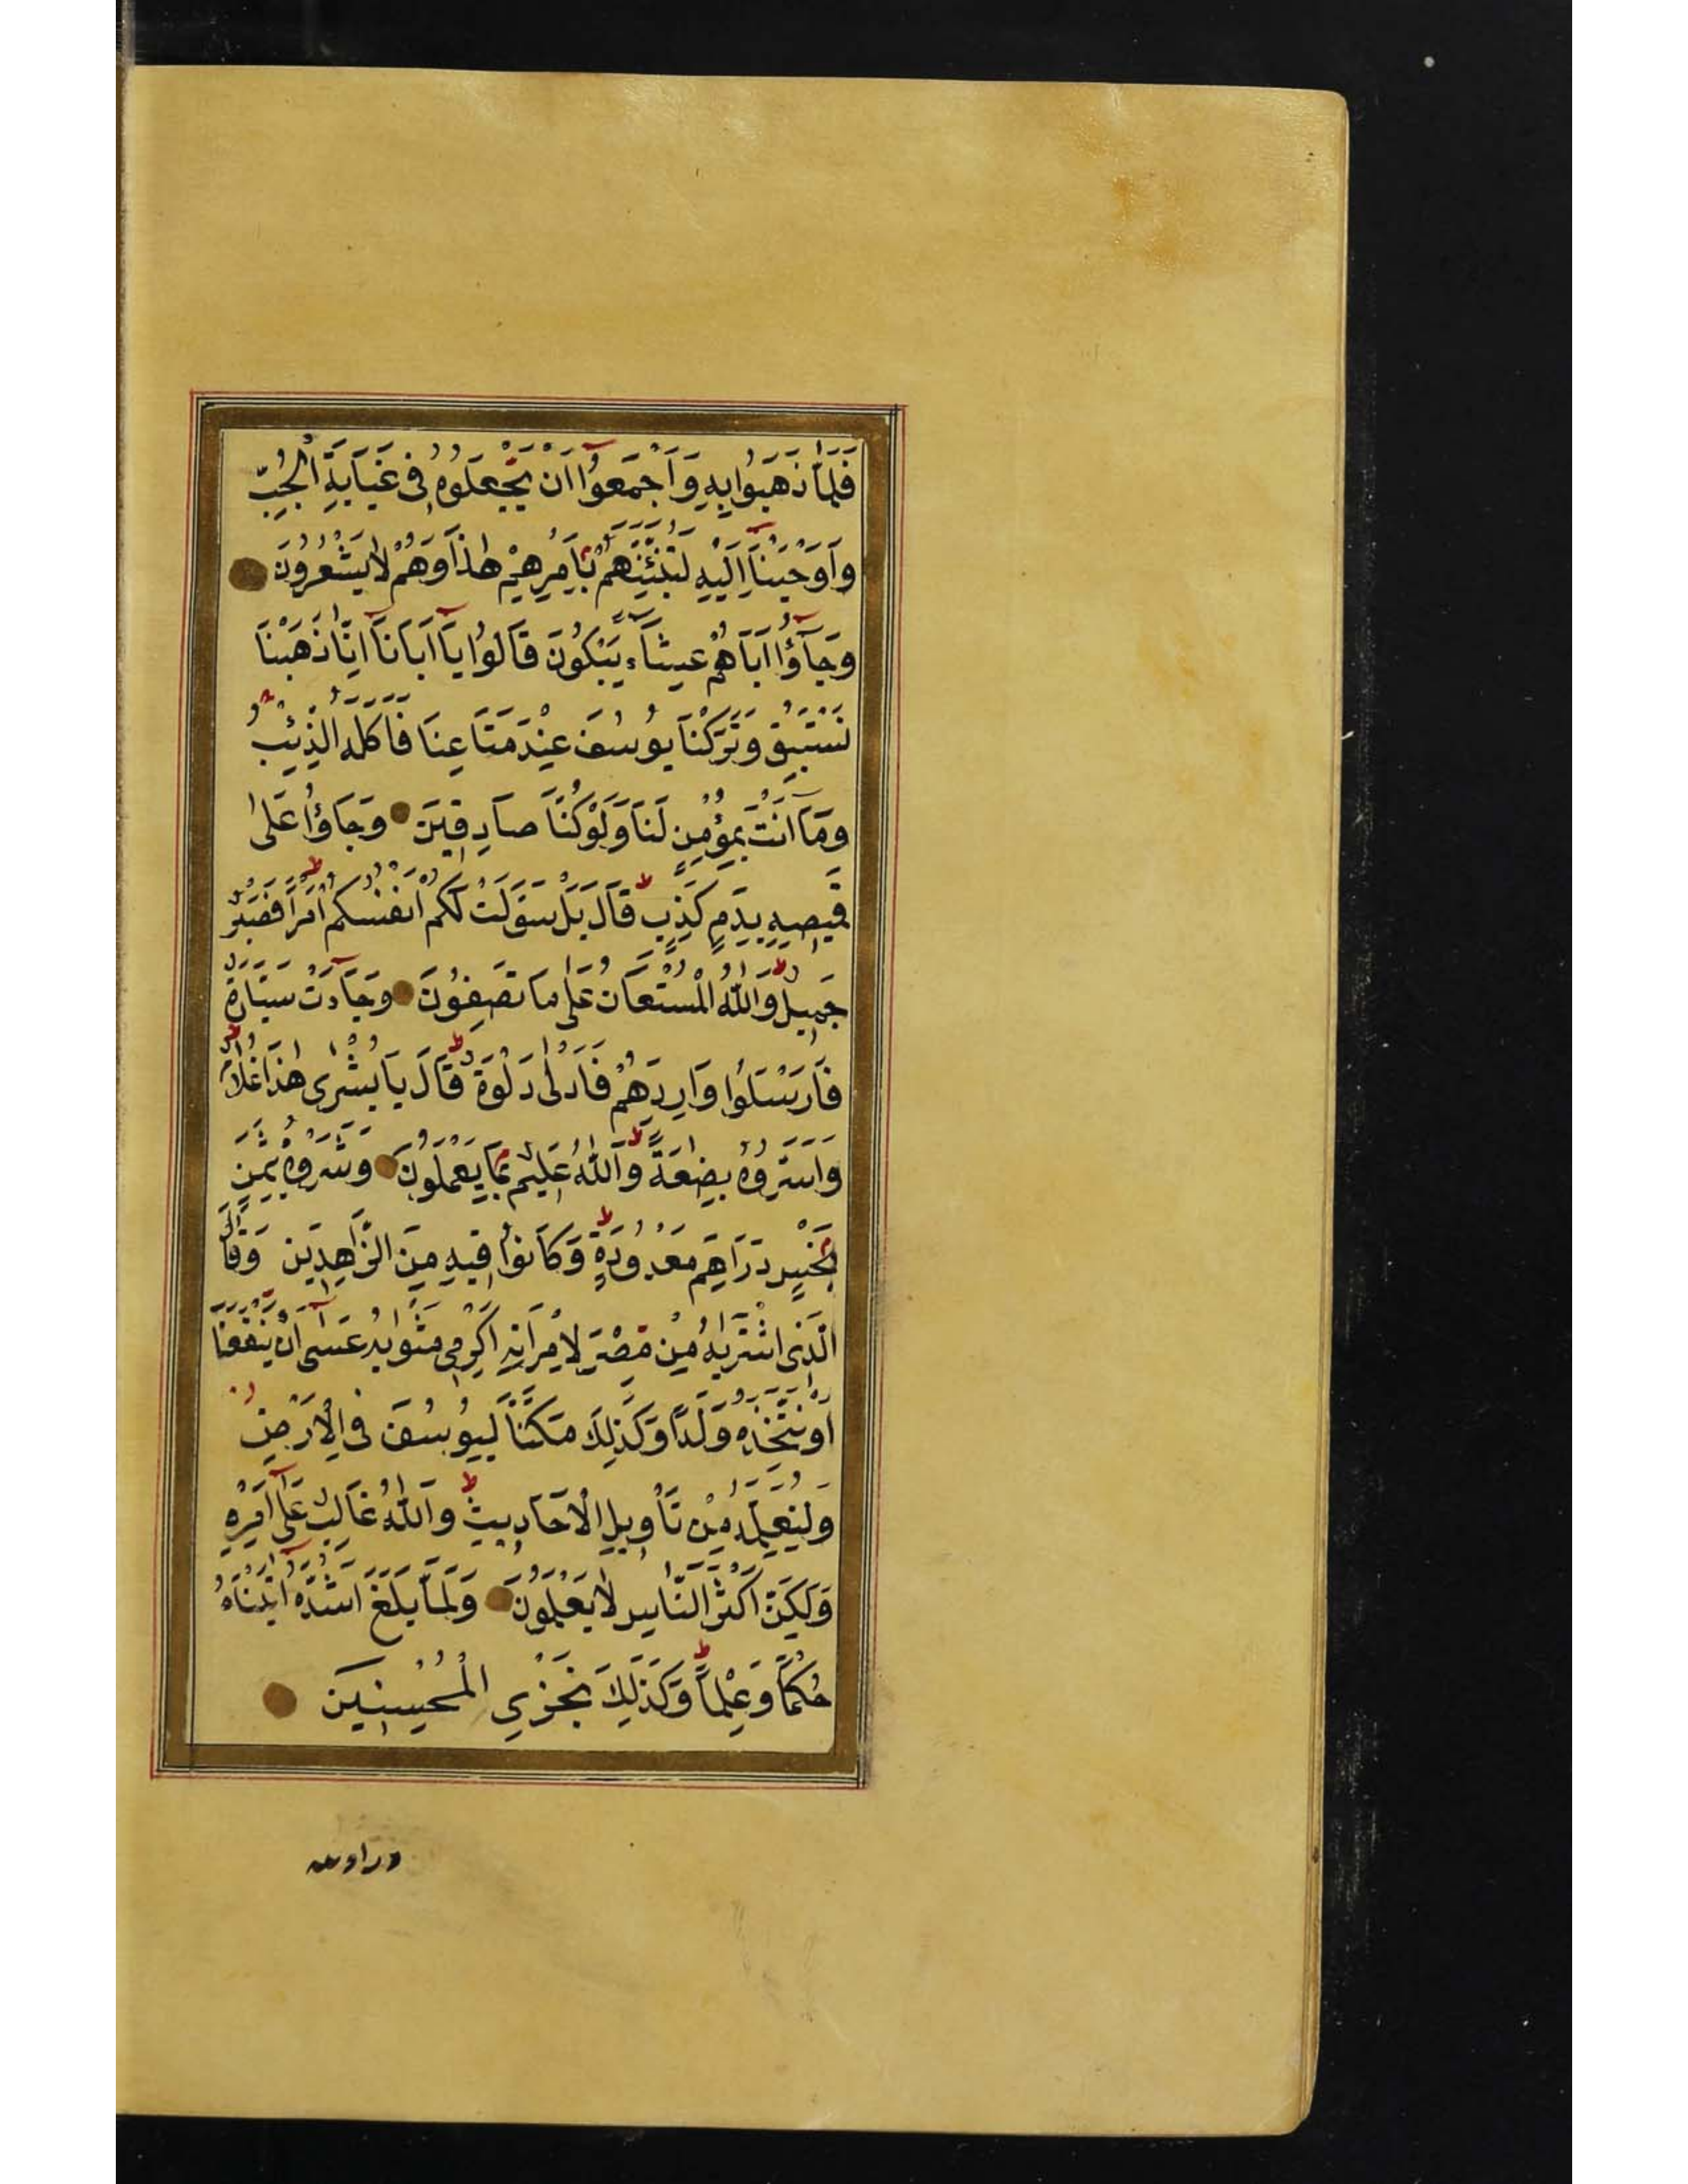 فَلَمَّا ذَهَبُوا بِهِ وَاَجْمَعُوٓا اَنْ يَجْعَلُوهُ فِى غَيَابَةِ الْجُبِّ
وَاَوْحَيْنَٓا اِلَيْهِ لَتُنَبِّئَنَّهُمْ بِاَمْرِهِمْ هٰذَا وَهُمْ لَا يَشْعُرُونَ
وَجَآؤُٓا اَبَاهُمْ عِشَآءً يَبْكُونَ قَالُوا يَٓا اَبَانَٓا اِنَّا ذَهَبْنَا
نَسْتَبِقُ وَتَرَكْنَا يُوسُفَ عِنْدَ مَتَاعِنَا فَاَكَلَهُ الذِّئْبُ
وَمَٓا اَنْتَ بِمُؤْمِنٍ لَنَا وَلَوْ كُنَّا صَادِقِينَ وَجَاؤُا عَلٰى
قَمِيصِهِ بِدَمٍ كَذِبٍ قَالَ بَلْ سَوَّلَتْ لَكُمْ اَنْفُسُكُمْ اَمْرًا فَصَبْرٌ
جَمِيلٌ وَاللّٰهُ الْمُسْتَعَانُ عَلٰى مَا تَصِفُونَ وَجَآءَتْ سَيَّارَةٌ
فَاَرْسَلُوا وَارِدَهُمْ فَاَدْلٰى دَلْوَهُ قَالَ يَا بُشْرٰى هٰذَا غُلَامٌ
وَاَسَرُّوهُ بِضٰعَةً وَاللّٰهُ عَلِيمٌ بِمَا يَعْمَلُونَ وَشَرَوْهُ بِثَمَنٍ
بَخْسٍ دَرَاهِمَ مَعْدُودَةٍ وَكَانُوا فِيهِ مِنَ الزَّاهِدِينَ وَقَالَ
الَّذِى اشْتَرٰيهُ مِنْ مِصْرَ لِامْرَاَتِهِ اَكْرِمِى مَثْوٰيهُ عَسٰٓى اَنْ يَنْفَعَنَا
اَوْ نَتَّخِذَهُ وَلَدًا وَكَذٰلِكَ مَكَّنَّا لِيُوسُفَ فِى الْاَرْضِ
وَلِنُعَلِّمَهُ مِنْ تَأْوِيلِ الْاَحَادِيثِ وَاللّٰهُ غَالِبٌ عَلٰٓى اَمْرِهِ
وَلٰكِنَّ اَكْثَرَ النَّاسِ لَا يَعْلَمُونَ وَلَمَّا بَلَغَ اَشُدَّهُ اٰتَيْنَاهُ
حُكْمًا وَعِلْمًا وَكَذٰلِكَ نَجْزِى الْمُحْسِنِينَ